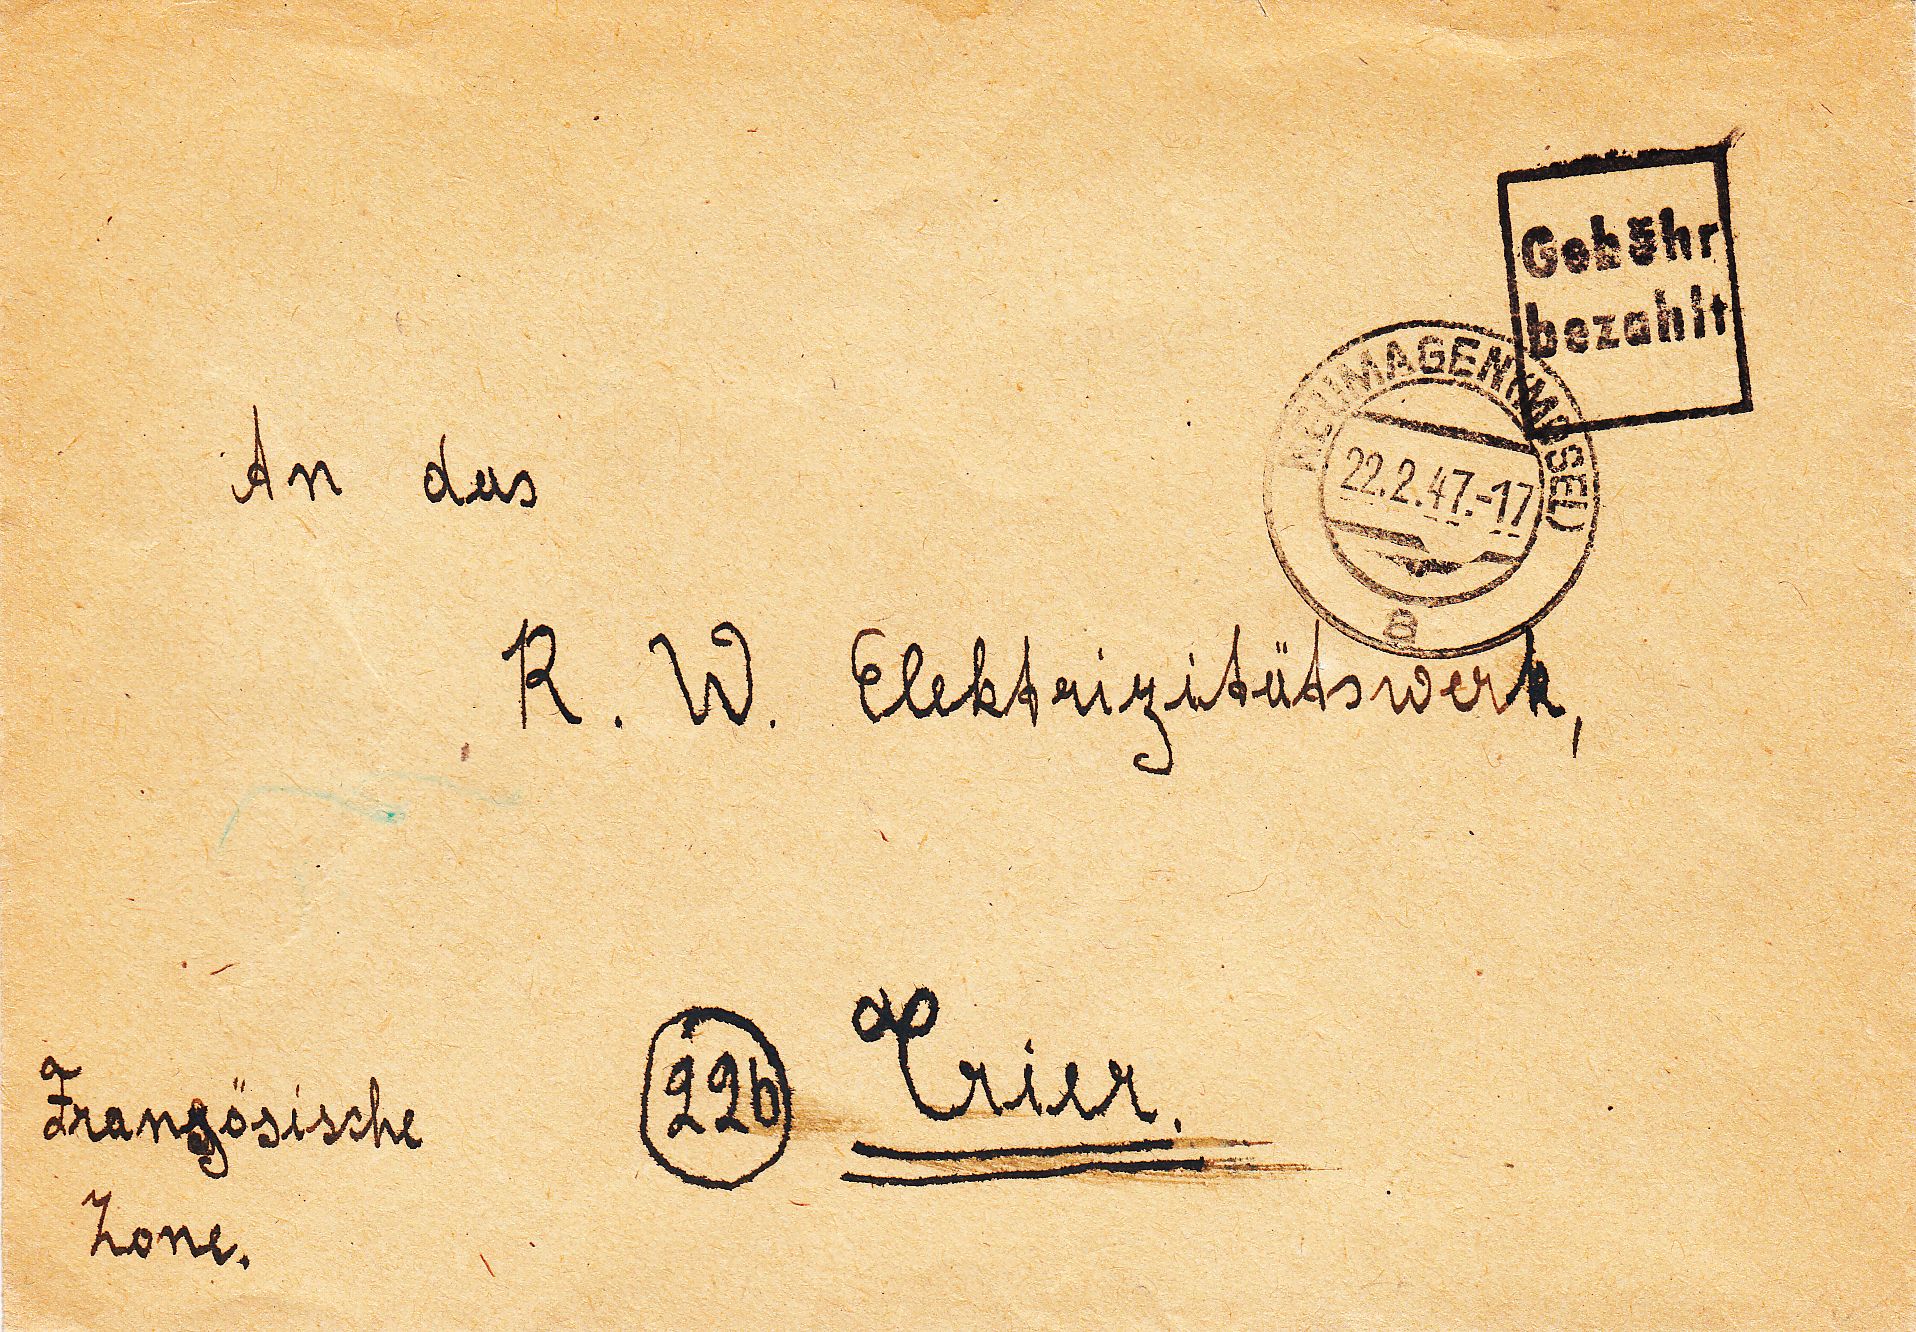 Gebühr
bezahlt
NEUMAGEN (MOSEL)
22.2.47.-17
a
An das
R. W. Elektrizitätswerk,
22b Trier.
Französische
Zone.